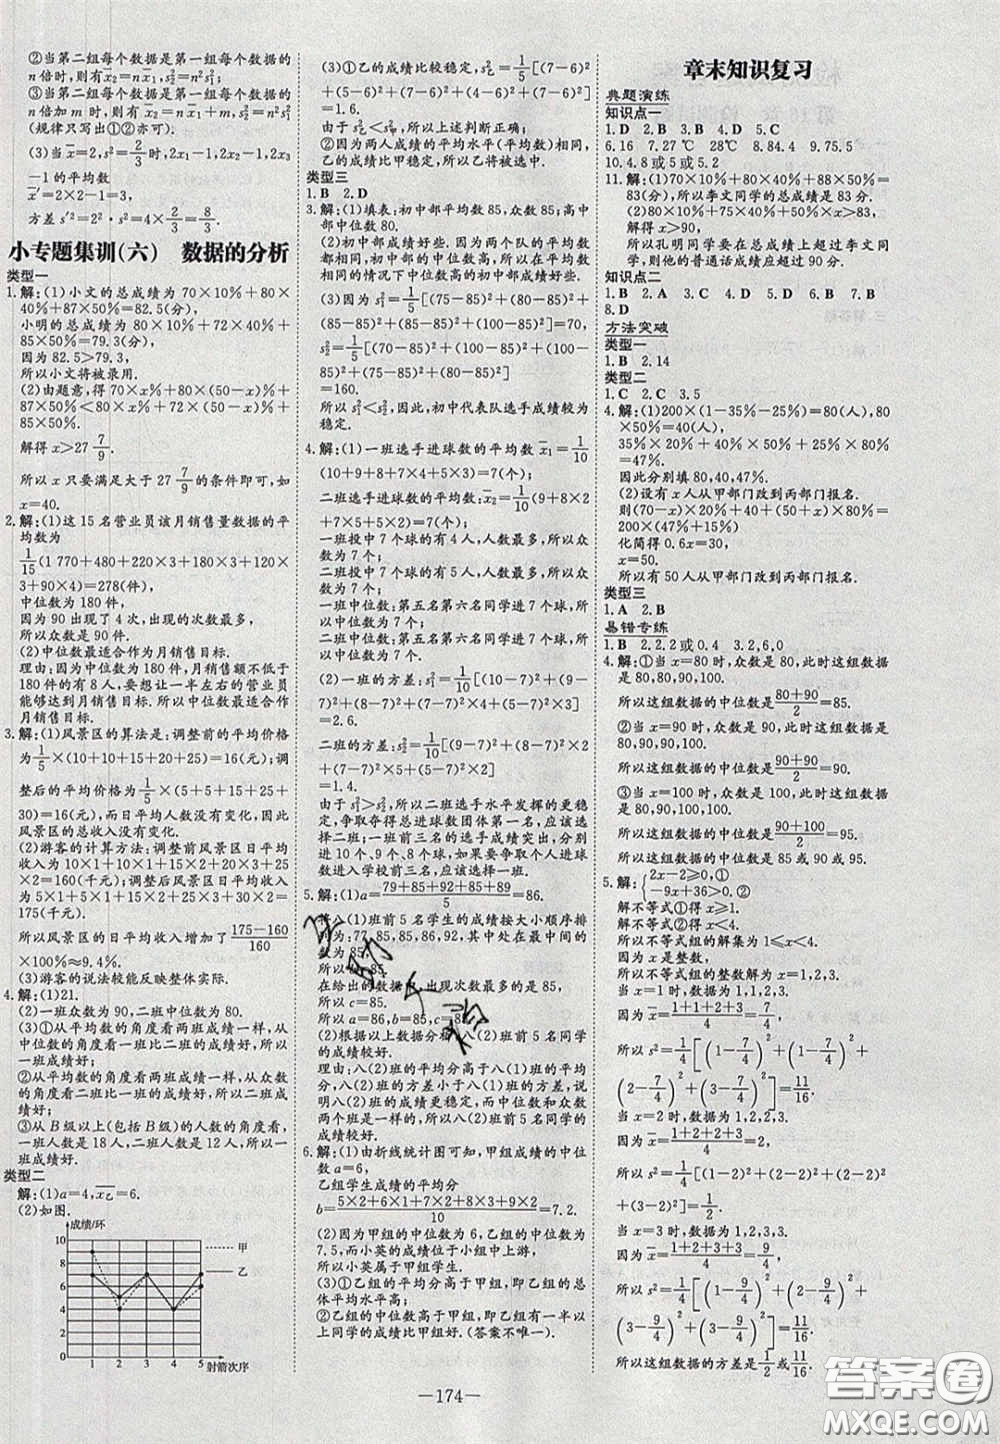 ②当第二组每个数据是第一组每个数据的
n倍时,则有x̄₂=nx̄₁,s₂²=n²s₁²;
③当第二组每个数据是第一组每个数据的
n倍加m时,则有x̄₂=nx̄₁+m,s₂²=n²s₁².
(规律只写出①②亦可).
(3)当x̄=2,s²=2/3时,2x₁-1,2x₂-1,2x₃
-1的平均数
x̄′=2×2-1=3,
方差s′²=2²·s²=4×2/3=8/3.
小专题集训(六) 数据的分析
类型一
1.解:(1)小文的总成绩为70×10%+80×
40%+87×50%=82.5(分),
小明的总成绩为80×10%+72×40%+
85×50%=79.3(分),
因为82.5>79.3,
所以小文将被录用.
(2)由题意,得70×x%+80×(50-x)%+
87×50%<80×x%+72×(50-x)%+
85×50%.
解得x>27 7/9.
所以x只要满足大于27 7/9的条件即可,如
x=40.
2.解:(1)这15名营业员该月销售量数据的平
均数为
1/15(1 770+480+220×3+180×3+120×
3+90×4)=278(件),
中位数为180件,
因为90出现了4次,出现的次数最多,
所以众数是90件.
(2)中位数最适合作为月销售目标.
理由:因为中位数为180件,月销售额不低于180
件的有8人,要想让一半左右的营业员
能够达到月销售目标.所以中位数最适合作
月销售目标.
3.解:(1)风景区的算法是:调整前的平均价格
为1/5×(10+10+15+20+25)=16(元);调
整后的平均价格为1/5×(5+5+15+25+
30)=16(元),而日平均人数没有变化,因
此风景区的总收入没有变化.
(2)游客的计算方法:调整前风景区日平均
收入为10×1+10×1+15×2+20×3+25
×2=160(千元);调整后风景区日平均收入
为5×1+5×1+15×2+25×3+30×2=
175(千元).
所以风景区的日平均收入增加了175-160/160
×100%≈9.4%.
(3)游客的说法较能反映整体实际.
4.解:(1)21.
(2)一班众数为90,二班中位数为80.
(3)①从平均数的角度看两班成绩一样,从
中位数的角度看一班比二班的成绩好,所以
一班成绩好;
②从平均数的角度看两班成绩一样,从众数
的角度看二班比一班的成绩好,所以二班成
绩好;
③从B级以上(包括B级)的人数的角度看,
一班人数是18人,二班人数是12人,所以一
班成绩好.
类型二
解:(1)a=4,x̄乙=6.
(2)如图.
成绩/环
10
8
6
4
2
0
甲
乙
1 2 3 4 5 射箭次序
(3)①乙的成绩比较稳定,s乙²=1/5[(7-6)²+
(5-6)²+(7-6)²+(4-6)²+(7-6)²]
=1.6.
由于s乙²<s甲²,所以上述判断正确.
②因为两人成绩的平均水平(平均数)相同,
乙的成绩比甲稳定,所以乙将被选中.
类型三
1.B 2.D
3.解:(1)填表:初中部平均数85,众数85;高中
部中位数80.
(2)初中部成绩好些.因为两个队的平均数
都相同,初中部的中位数高,所以在平均数
相同的情况下中位数高的初中部成绩好些.
(3)因为s₁²=1/5[(75-85)²+(80-85)²+
(85-85)²+(85-85)²+(100-85)²]=70,
s₂²=1/5[(70-85)²+(100-85)²+(100-
85)²+(75-85)²+(80-85)²]
=160.
s₁²<s₂²,因此,初中代表队选手成绩较为
稳定.
4.解:(1)一班选手进球数的平均数x̄₁=1/10
(10+9+8+7×4+6×0+5×3)=7(个);
二班选手进球数的平均数:x̄₂=1/10(9+8×
2+7×5+5×2)=7(个);
一班投中7个球的有4人,人数最多,所以众
数为7个;
二班投中7个球的有5人,人数最多,所以众
数为7个;
一班中位数:第五名第六名同学进7个球,所
以中位数是7个;
二班中位数:第五名第六名同学进7个球,所
以中位数是7个.
(2)一班的方差:s₁²=1/10[(10-7)²+(9-
7)²+(8-7)²+(7-7)²×4+(5-7)²×3]
=2.6.
二班的方差:s₂²=1/10[(9-7)²+(8-7)²×2
+(7-7)²×5+(5-7)²×2]
=1.4.
由于s₁²>s₂²,所以二班选手水平发挥的更稳
定,争取夺得总进球数团体第一名,应该选
择二班;一班前三名选手的成绩突出,分别
进10个、9个、8个球,如果要争取个人进球
数进入学校前三名,应该选择一班.
5.解:(1)a=79+85+92+85+89/5=86.
将八(1)班前5名学生的成绩按大小顺序排
列为:77,85,85,86,92,其中处在最中间的
数为85,
所以b=85.
在给出的数据中,出现次数最多的是85,
所以c=85.
所以a=86,b=85,c=85.
(2)根据以上数据分析,八(2)班前5名同学
的成绩较好.
理由:八(2)班的平均分高于八(1)班,八(2)
班的方差小于八(1)班的方差,说明八(2)班
的成绩更稳定,而它们的中位数和众数
两个班是一样的,所以八(2)班前5名同学的
成绩较好.
6.解:(1)由折线统计图可知,甲组成绩的中位
数a=6,
乙组学生成绩的平均分
b=5×2+6×1+7×2+8×3+9×2/10=7.2.
(2)因为甲组的中位数为6,乙组的中位数为
7.5,而小英的成绩位于小组中上游,
所以小英属于甲组学生.
(3)①乙组的平均分高于甲组,即乙组的总体
平均水平高;
②乙组的中位数高于甲组,即乙组有一半以
上同学的成绩比甲组好.(答案不唯一).
章末知识复习
典题演练
知识点一
1.D 2.B 3.D 4.D 5.C
6.16 7.27℃ 28℃ 8.84.4 9.75.5
10.4.8或5或5.2
11.解:(1)70×10%+80×40%+88×50%=
83(分),所以李文同学的总成绩是83分.
(2)80×10%+75×40%+50%·x>83,
解得x>90.
所以孔明同学要在总成绩上超过李文同
学,则他的普通话成绩应超过90分.
知识点二
1.B 2.A 3.C 4.D 5.D 6.A 7.B
8.D
方法突破
类型一
1.B 2.14
类型二
1.C 2.C 3.5
4.解:(1)200×(1-35%-25%)=80(人),80
×50%=40(人),
35%×20%+40%×50%+25%×80%
=47%.
因此分别填80,40,47%.
(2)设有x人从甲部门改到丙部门,
则(70-x)×20%+80×50%+(50+x)×80%=
200×(47%+15%)
化简得0.6x=30.
x=50.
所以有50人从甲部门改到丙部门.
类型三
1.A 2.B
易错专练
1.B 2.2.2或0.4 3.2,6,0
4.解:①当x=80时,众数是80,此时这组数据
是80,80,90,100.
所以这组数据的中位数是80+90/2=85.
②当x=90时,众数是90,此时这组数据是
80,90,90,100.
所以这组数据的中位数是90+90/2=90.
③当x=100时,众数是100,此时这组数据是
80,90,100,100.
所以这组数据的中位数是90+100/2=95.
所以这组数据的中位数是85或90或95.
5.解:{2x-2≥0,① -9x+36>0.②
解不等式①得x≥1.
解不等式②得x<4.
所以不等式组的解集为1≤x<4.
因为x是整数,
所以不等式组的整数解为x=1,2,3.
当x=1时,数据为1,1,2,3.
因为x̄=1+1+2+3/4=7/4,
所以s²=1/4[(1-7/4)²+(1-7/4)²+
(2-7/4)²+(3-7/4)²]=11/16.
当x=2时,数据为1,2,2,3.
因为x̄=1+2+2+3/4=2,
所以s²=1/4[(1-2)²+(2-2)²+(2-2)²
+(3-2)²]=1/2.
当x=3时,数据为1,2,3,3.
因为x̄=1+2+3+3/4=9/4,
所以s²=1/4[(1-9/4)²+(2-9/4)²+
(3-9/4)²+(3-9/4)²]=11/16.
所以这组数据的方差是1/2或11/16.
—174—
答案圈
MXQE.COM